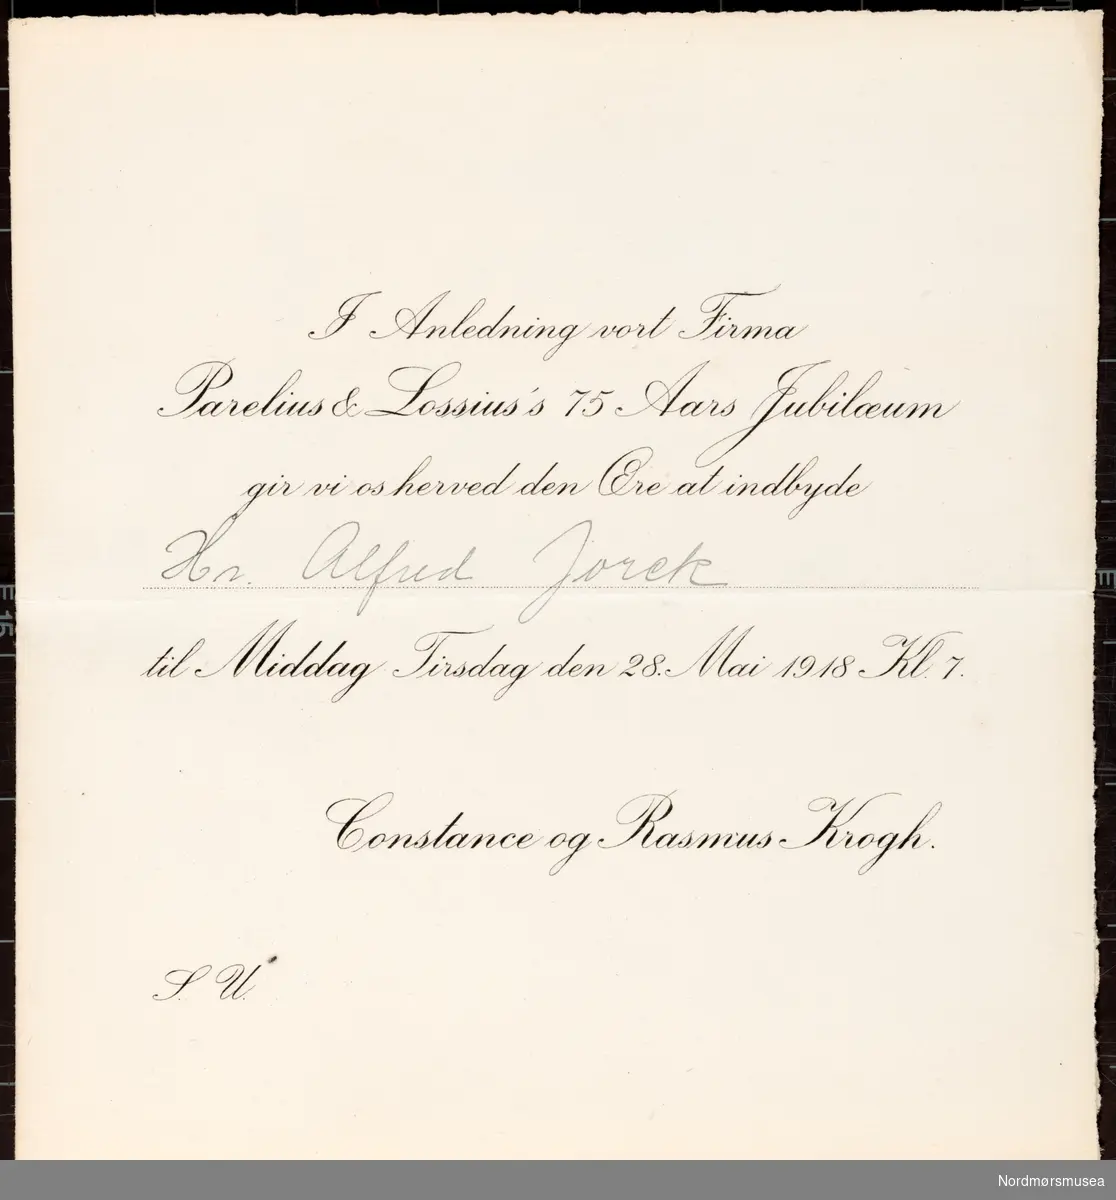 I Anledning vort Firma
Parelius & Lossius's 75 Aars Jubilæum
gir vi os herved den Ære at indbyde
Hr. Alfred Jorck
til Middag Tirsdag den 28. Mai 1918 Kl. 7.
Constance og Rasmus Krogh.
S. U.
15
Nordmørsmusea